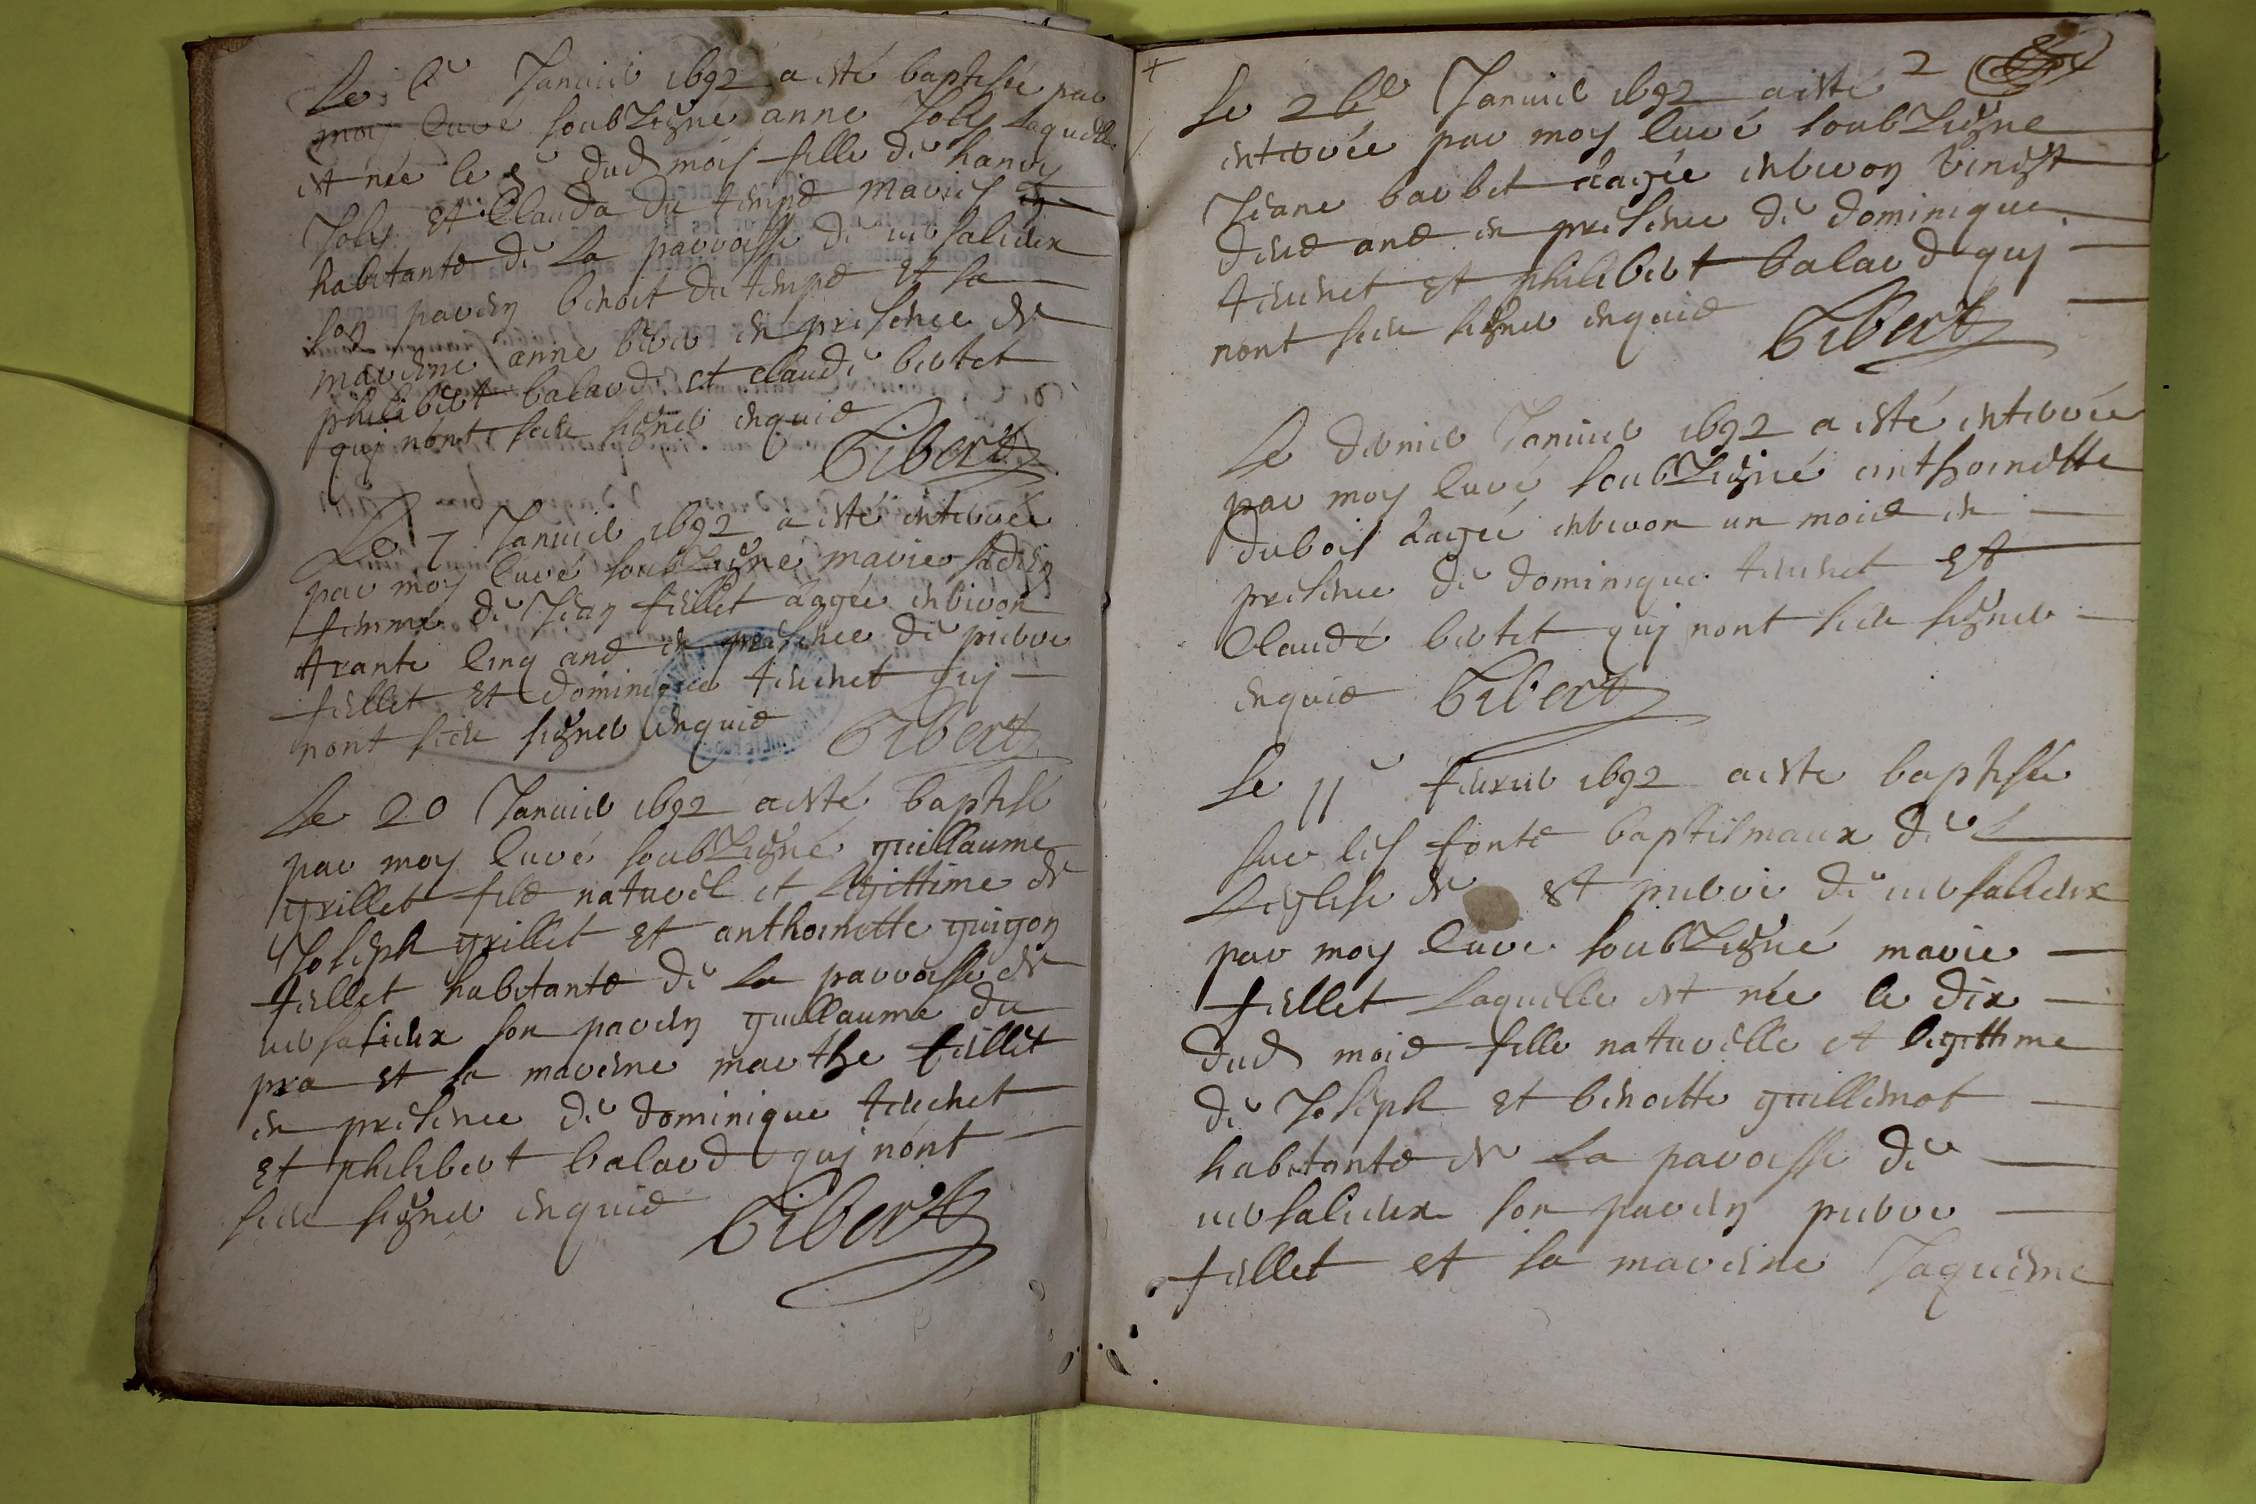 Le 6e Janvier 1692 a esté baptisée par
moy Curé soubZigné anne Joly laquelle
est née le 5e dud mois fille de hanry
Joly et Clauda du temps mariés
habitants de La parroisse de versalieux
son parrin benoit du temps et sa
marrene anne en presence de
philibert balard et claude bertet
qui n'ont sceu signer enquis
Gibert
Le 7 Janvier 1692 a esté enterrée
par moy Curé soubZigné marie
femme de Jean fiellet aagée environ
trante cinq ans en presence de pierre
fiellet et dominique teuchet qui
nont sceu signer enquis Gibert
Le 20 Janvier 1692 a esté baptisé
par moy Curé soubZigné guillaume
grillet fils naturel et Legittime de
Joseph grillet et anthoinette guigon
fiellet habitants de La parroisse de
versalieux son parrin guillaume du
pra et sa marrene marthe fiellet
en presence de dominique teuchet
et philibert balard qui n'ont
sceu signer enquis Gibert
2
Le 26e Janvier 1692 a esté
enterrée par moy Curé soubZigné
Jeane barbet aagée environ vingt
deux ans en presence de dominique
teuchet et philibert balard qui
nont sceu signer enquis Gibert
Le dernier Janvier 1692 a esté enterrée
par moy Curé soubZigné anthoinette
dubois aagée environ un mois en
presence de dominique teuchet et
Claude bertet qui nont sceu signer
enquis Gibert
Le 11e fevrier 1692 a este baptisée
sur les fonts baptismaux de
Leglise de st pierre de versalieux
par moy Curé soubZigné marie
fiellet Laquelle est née le dix
dud mois fille naturelle et legittime
de Joseph et benoitte guillemot
habitants de La paroisse de
versalieux son parrin pierre
fiellet et sa marrene Jaqueme